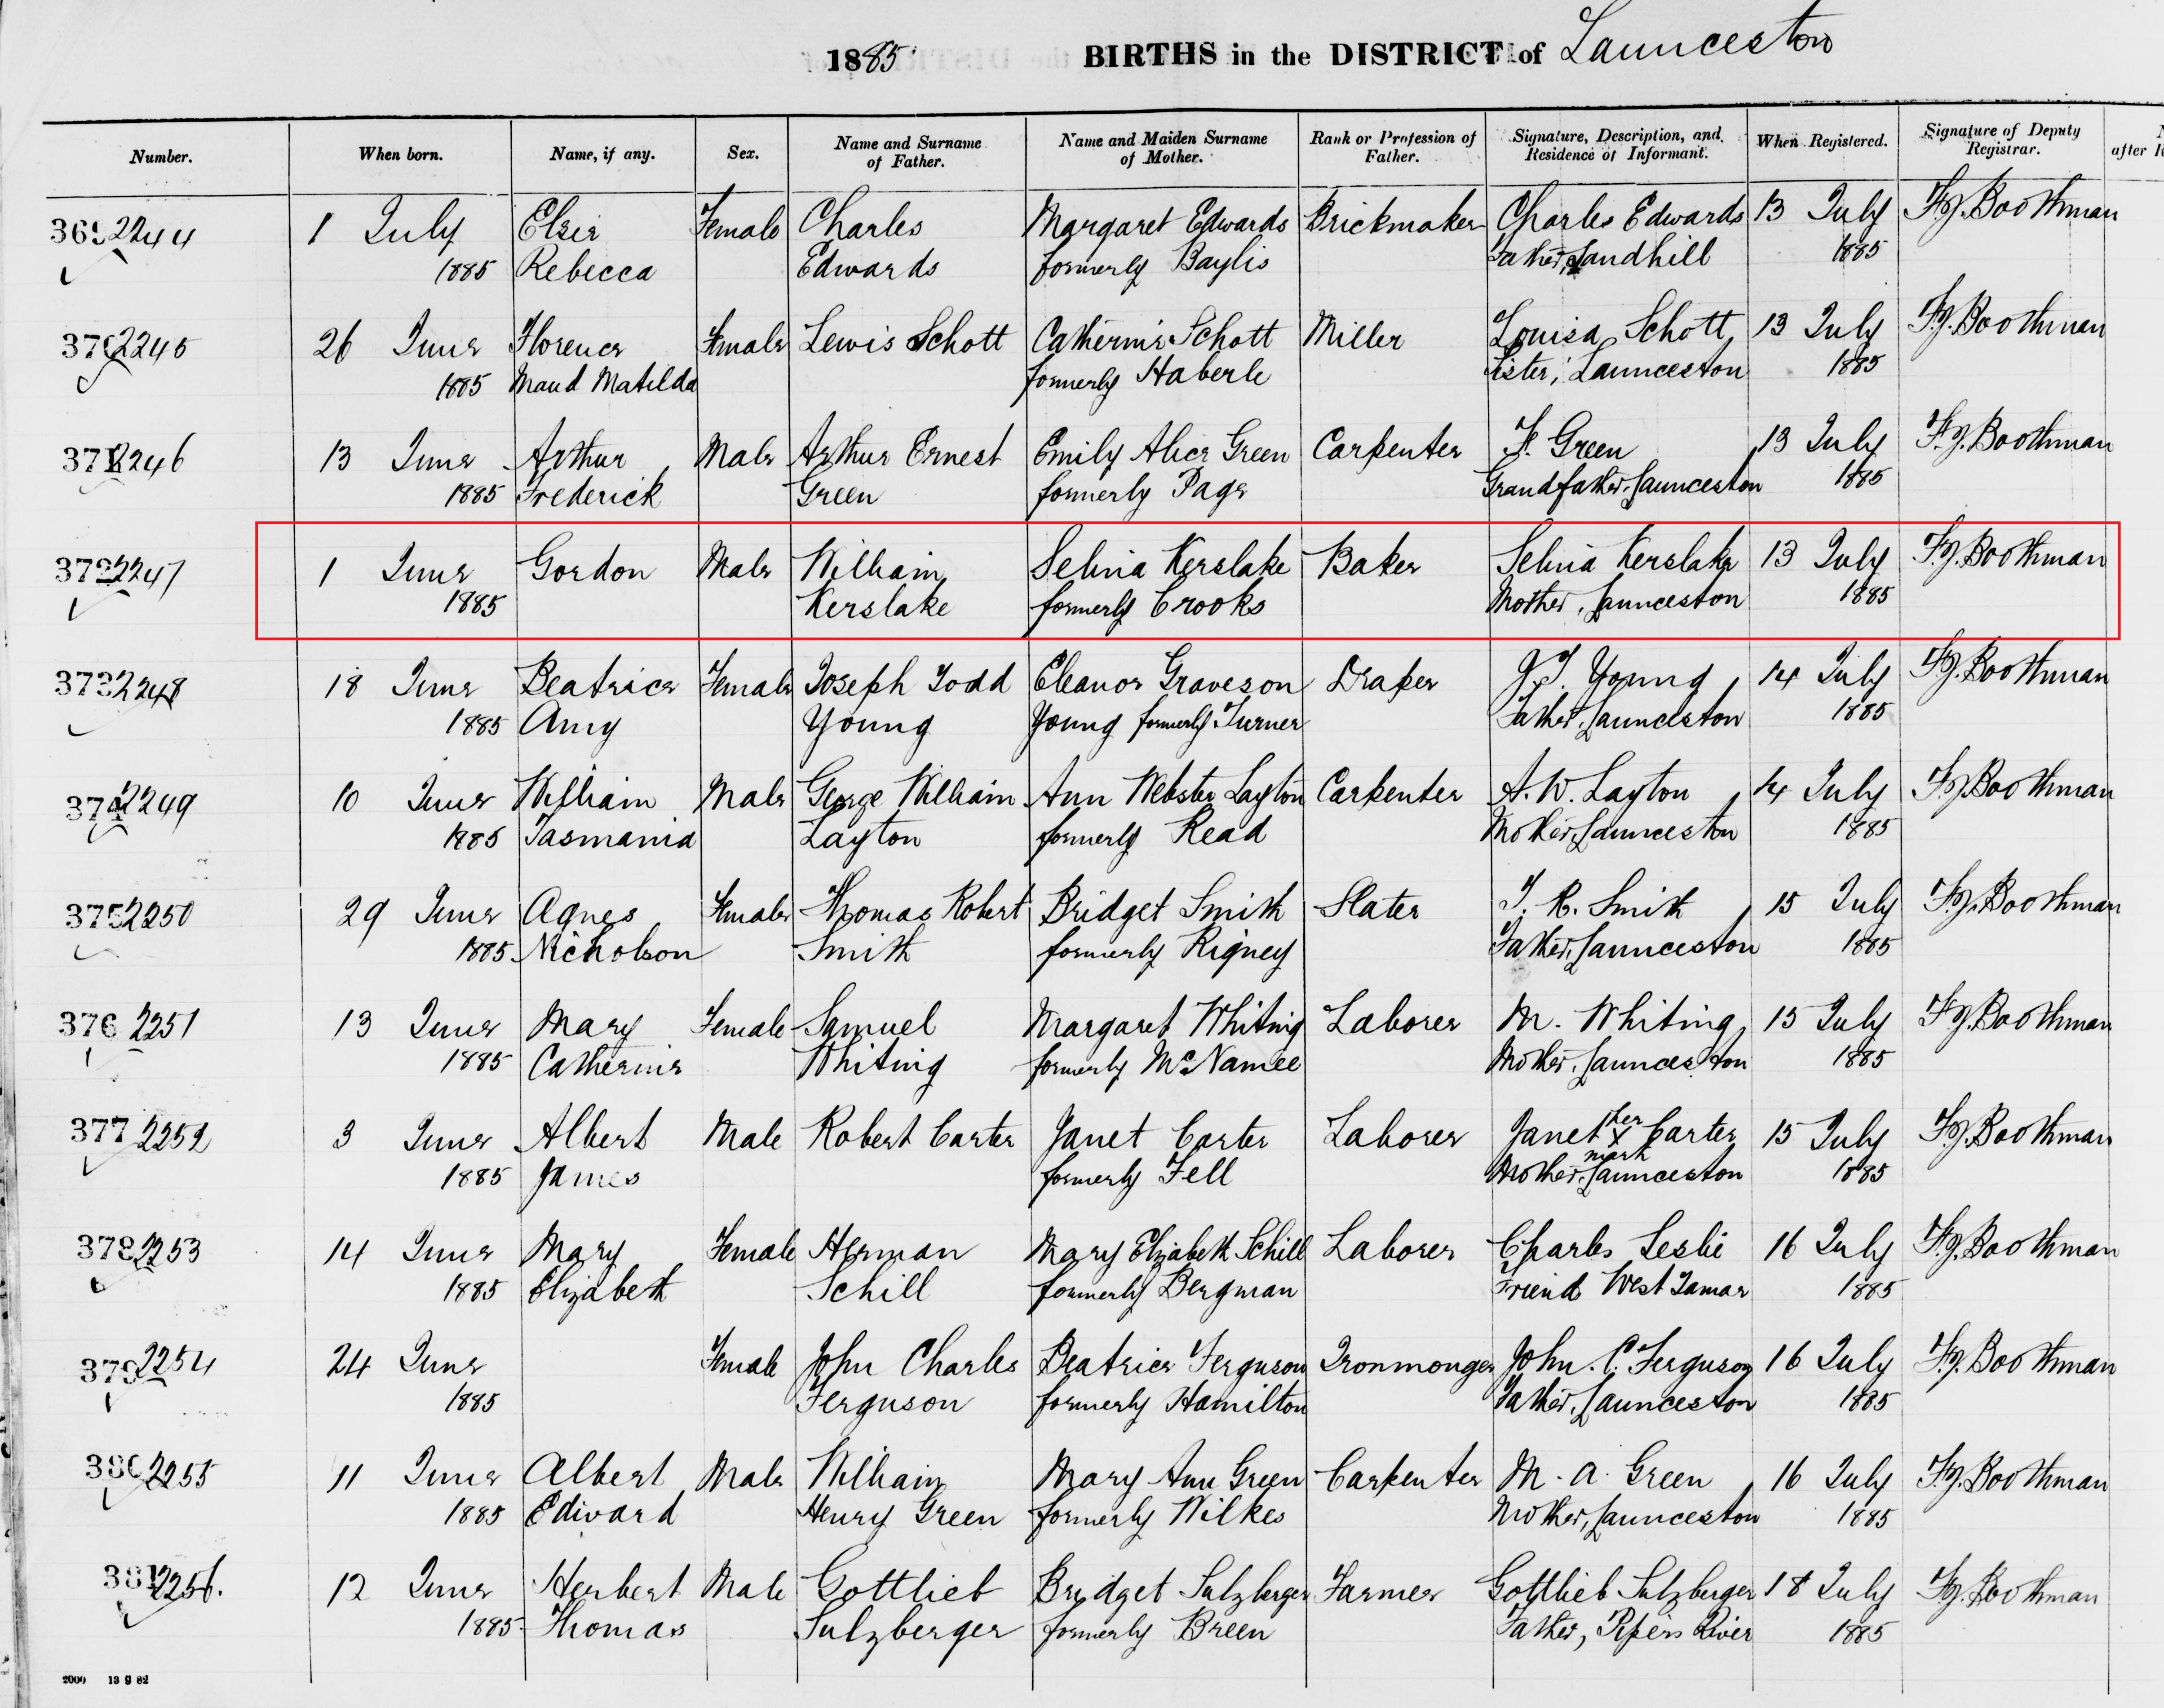 1885 BIRTHS in the DISTRICT of Launceston
Number. When born. Name, if any. Sex. Name and Surname of Father. Name and Maiden Surname of Mother. Rank or Profession of Father. Signature, Description, and Residence of Informant. When Registered. Signature of Deputy Registrar. after
369 2244 1 July Elsie Female Charles Margaret Edwards Brickmaker Charles Edwards 13 July F.G. Boothman
1885 Rebecca Edwards formerly Baylis Father, Sandhill 1885
370 2245 26 June Florence Female Lewis Schott Catherine Schott Miller Louisa Schott 13 July F.G. Boothman
1885 Maud Matilda formerly Haberle Sister, Launceston 1885
371 2246 13 June Arthur Male Arthur Ernest Emily Alice Green Carpenter F. Green 13 July F.G. Boothman
1885 Frederick Green formerly Page Grandfather, Launceston 1885
372 2247 1 June Gordon Male William Selina Kerslake Baker Selina Kerslake 13 July F.G. Boothman
1885 Kerslake formerly Crooks Mother, Launceston 1885
373 2248 18 June Beatrice Female Joseph Todd Eleanor Graveson Draper J.T. Young 14 July F.G. Boothman
1885 Amy Young Young formerly Turner Father, Launceston 1885
374 2249 10 June William Male George William Ann Webster Layton Carpenter A. W. Layton 14 July F.G. Boothman
1885 Tasmania Layton formerly Read Mother, Launceston 1885
375 2250 29 June Agnes Female Thomas Robert Bridget Smith Slater T. R. Smith 15 July F.G. Boothman
1885 Nicholson Smith formerly Rigney Father, Launceston 1885
376 2251 13 June Mary Female Samuel Margaret Whiting Laborer M. Whiting 15 July F.G. Boothman
1885 Catherine Whiting formerly McNamee Mother, Launceston 1885
377 2252 3 June Albert Male Robert Carter Janet Carter Laborer Janet her X mark Carter 15 July F.G. Boothman
1885 James formerly Fell Mother, Launceston 1885
378 2253 14 June Mary Female Herman Mary Elizabeth Schill Laborer Charles Leslie 16 July F.G. Boothman
1885 Elizabeth Schill formerly Bergman Friend West Tamar 1885
379 2254 24 June Female John Charles Beatrice Ferguson Ironmonger John. C. Ferguson 16 July F.G. Boothman
1885 Ferguson formerly Hamilton Father, Launceston 1885
380 2255 11 June Albert Male William Mary Ann Green Carpenter M. A. Green 16 July F.G. Boothman
1885 Edward Henry Green formerly Wilkes Mother, Launceston 1885
381 2256. 12 June Herbert Male Gottlieb Bridget Sulzberger Farmer Gottlieb Sulzberger 18 July F.G. Boothman
1885 Thomas Sulzberger formerly Breen Father, Pipers River 1885
2000 13 9 82